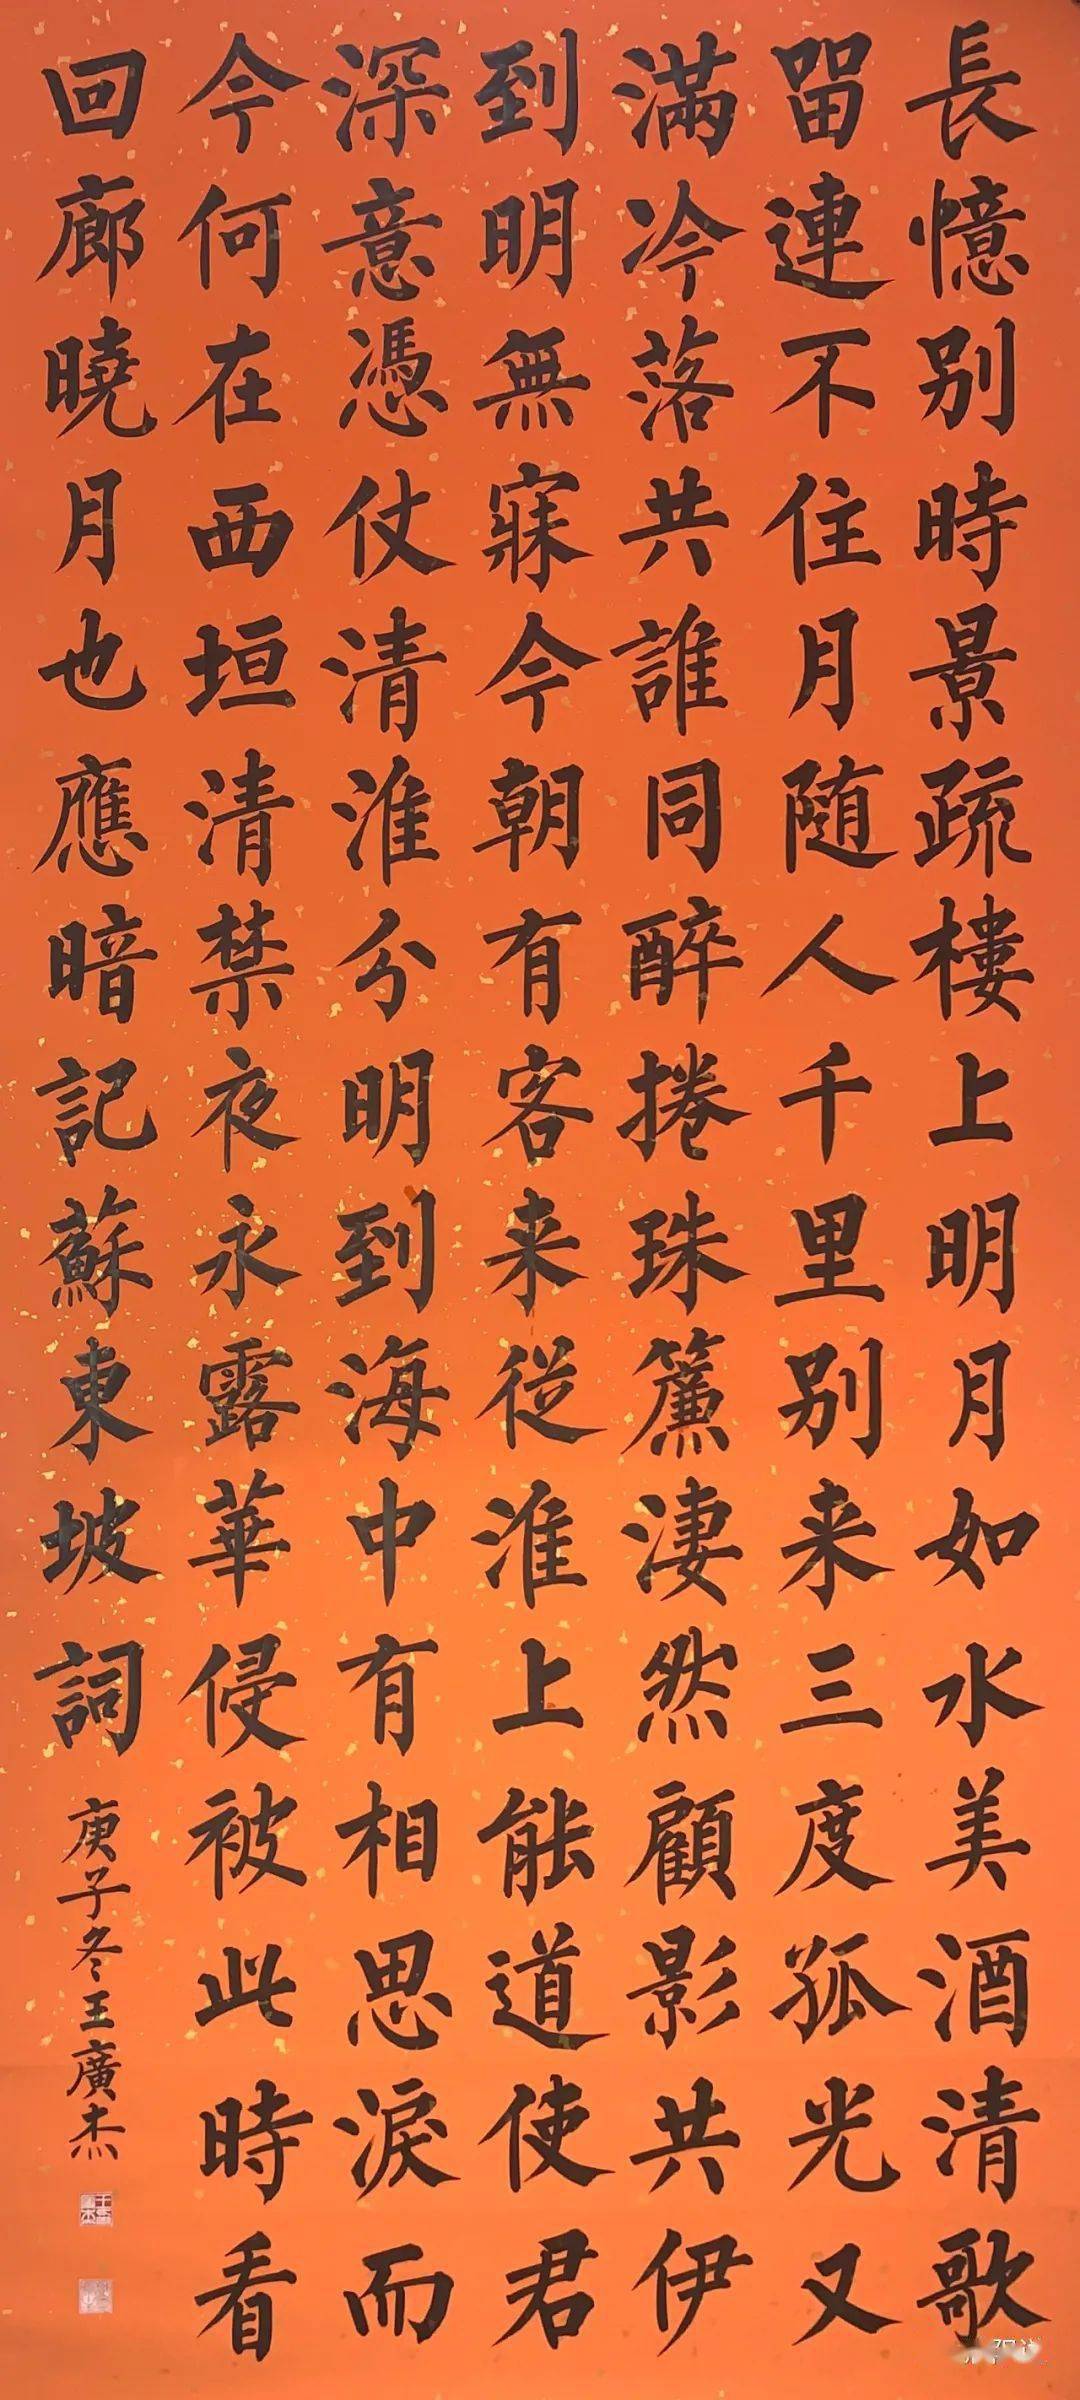 長憶别時景疏樓上明月如水美酒清歌
留連不住月随人千里别来三度孤光又
滿冷落共誰同醉捲珠簾淒然顧影共伊
到明無寐今朝有客来從淮上能道使君
深意憑仗清淮分明到海中有相思淚而
今何在西垣清禁夜永露華侵被此時看
回廊曉月也應暗記蘇東坡詞
庚子冬王廣杰